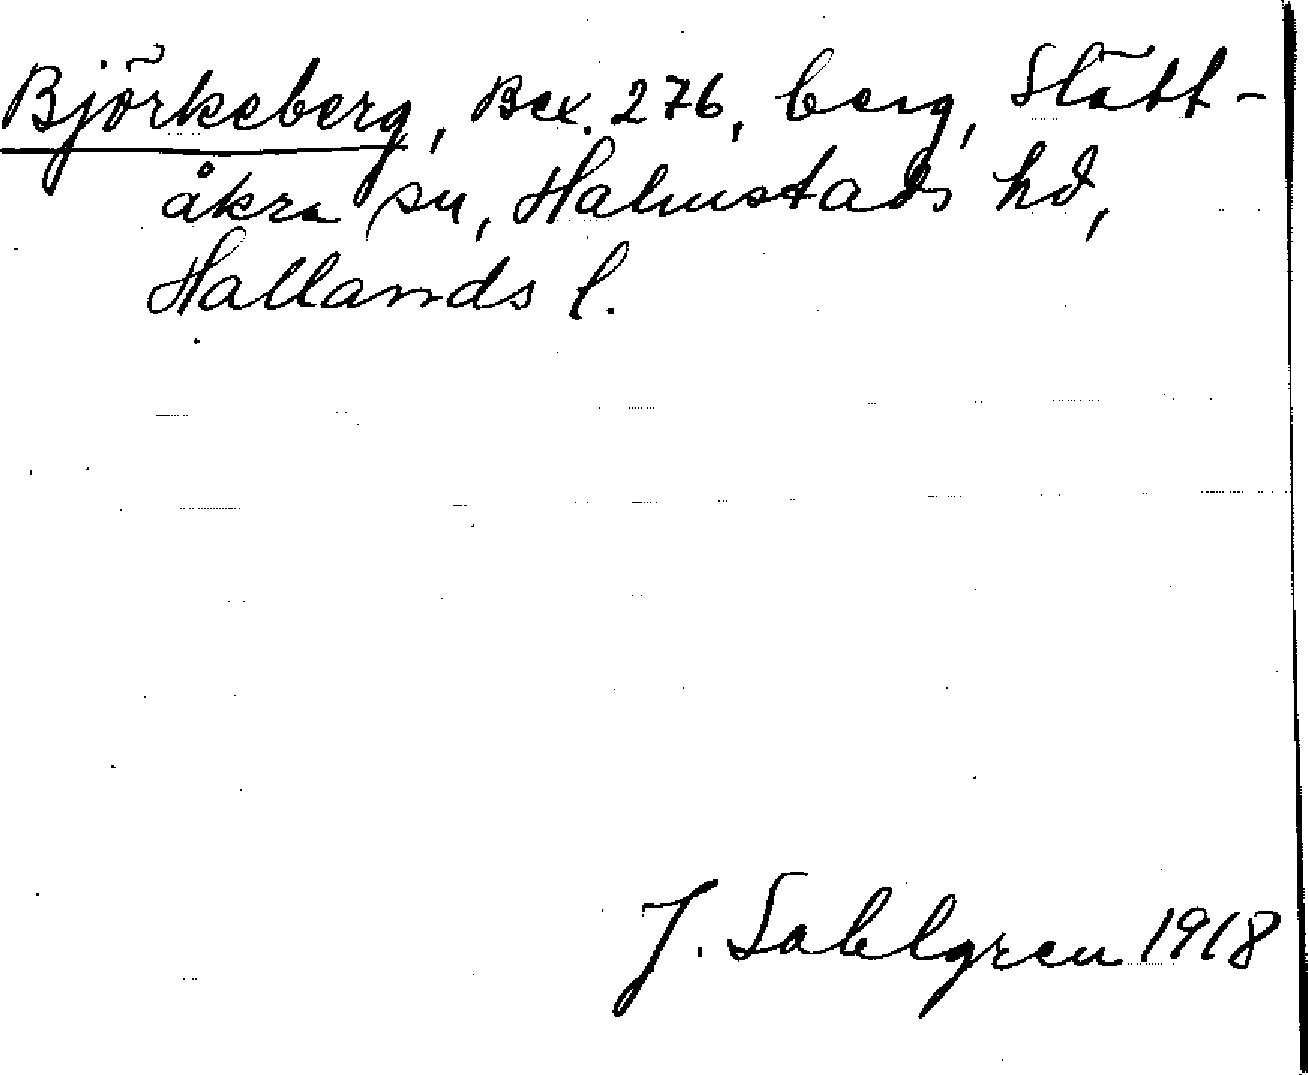 Björkeberg, Bex. 276, berg, Slätt-
åkra sn, Halmstads hd,
Hallands l.
J. Sahlgren 1918